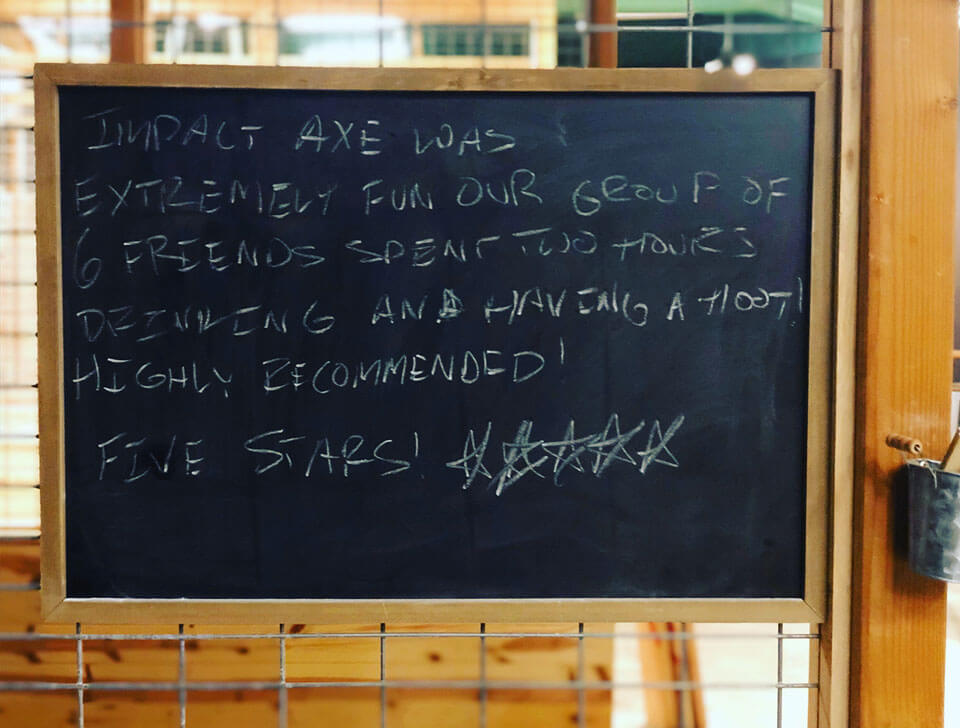 IMPACT AXE WAS
EXTREMELY FUN OUR GROUP OF
6 FRIENDS SPENT TWO HOURS
DRINKING AND HAVING A HOOT!
HIGHLY RECOMMENDED!
FIVE STARS! ☆☆☆☆☆